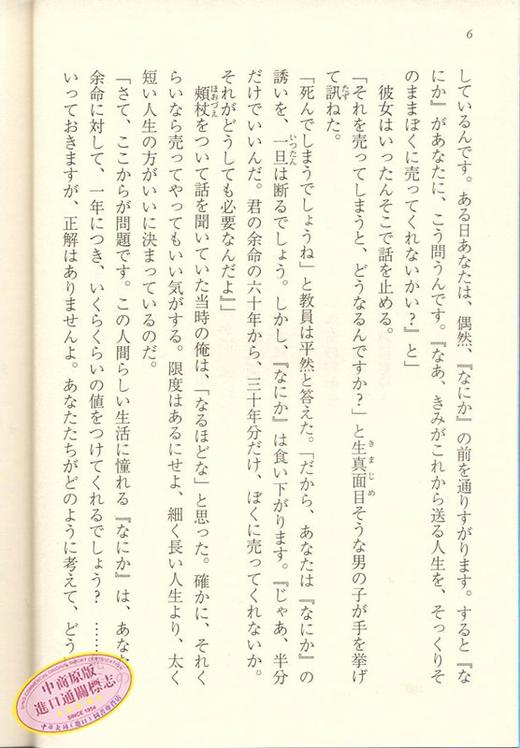 6
しているんです。ある日あなたは、偶然、『なにか』の前を通りすがります。すると『な
にか』があなたに、こう問うんです。『なあ、きみがこれから送る人生を、そっくりそ
のままぼくに売ってくれないかい？』と」
彼女はいったんそこで話を止める。
「それを売ってしまうと、どうなるんですか？」と生真面目そうな男の子が手を挙げ
て訊ねた。
「死んでしまうでしょうね」と教員は平然と答えた。「だから、あなたは『なにか』の
誘いを、一旦は断るでしょう。しかし、『なにか』は食い下がります。『じゃあ、半分
だけでいいんだ。君の余命の六十年から、三十年分だけ、ぼくに売ってくれないか。
それがどうしても必要なんだよ』」
頬杖をついて話を聞いていた当時の俺は、「なるほどな」と思った。確かに、それく
らいなら売ってやってもいい気がする。限度はあるにせよ、細く長い人生より、太く
短い人生の方がいいに決まっているのだ。
「さて、ここからが問題です。この人間らしい生活に憧れる『なにか』は、あな
余命に対して、一年につき、いくらくらいの値をつけてくれるでしょう？……
いっておきますが、正解はありませんよ。あなたたちがどのように考えて、どう
中商原版
進口通關標志
SINCE 1954